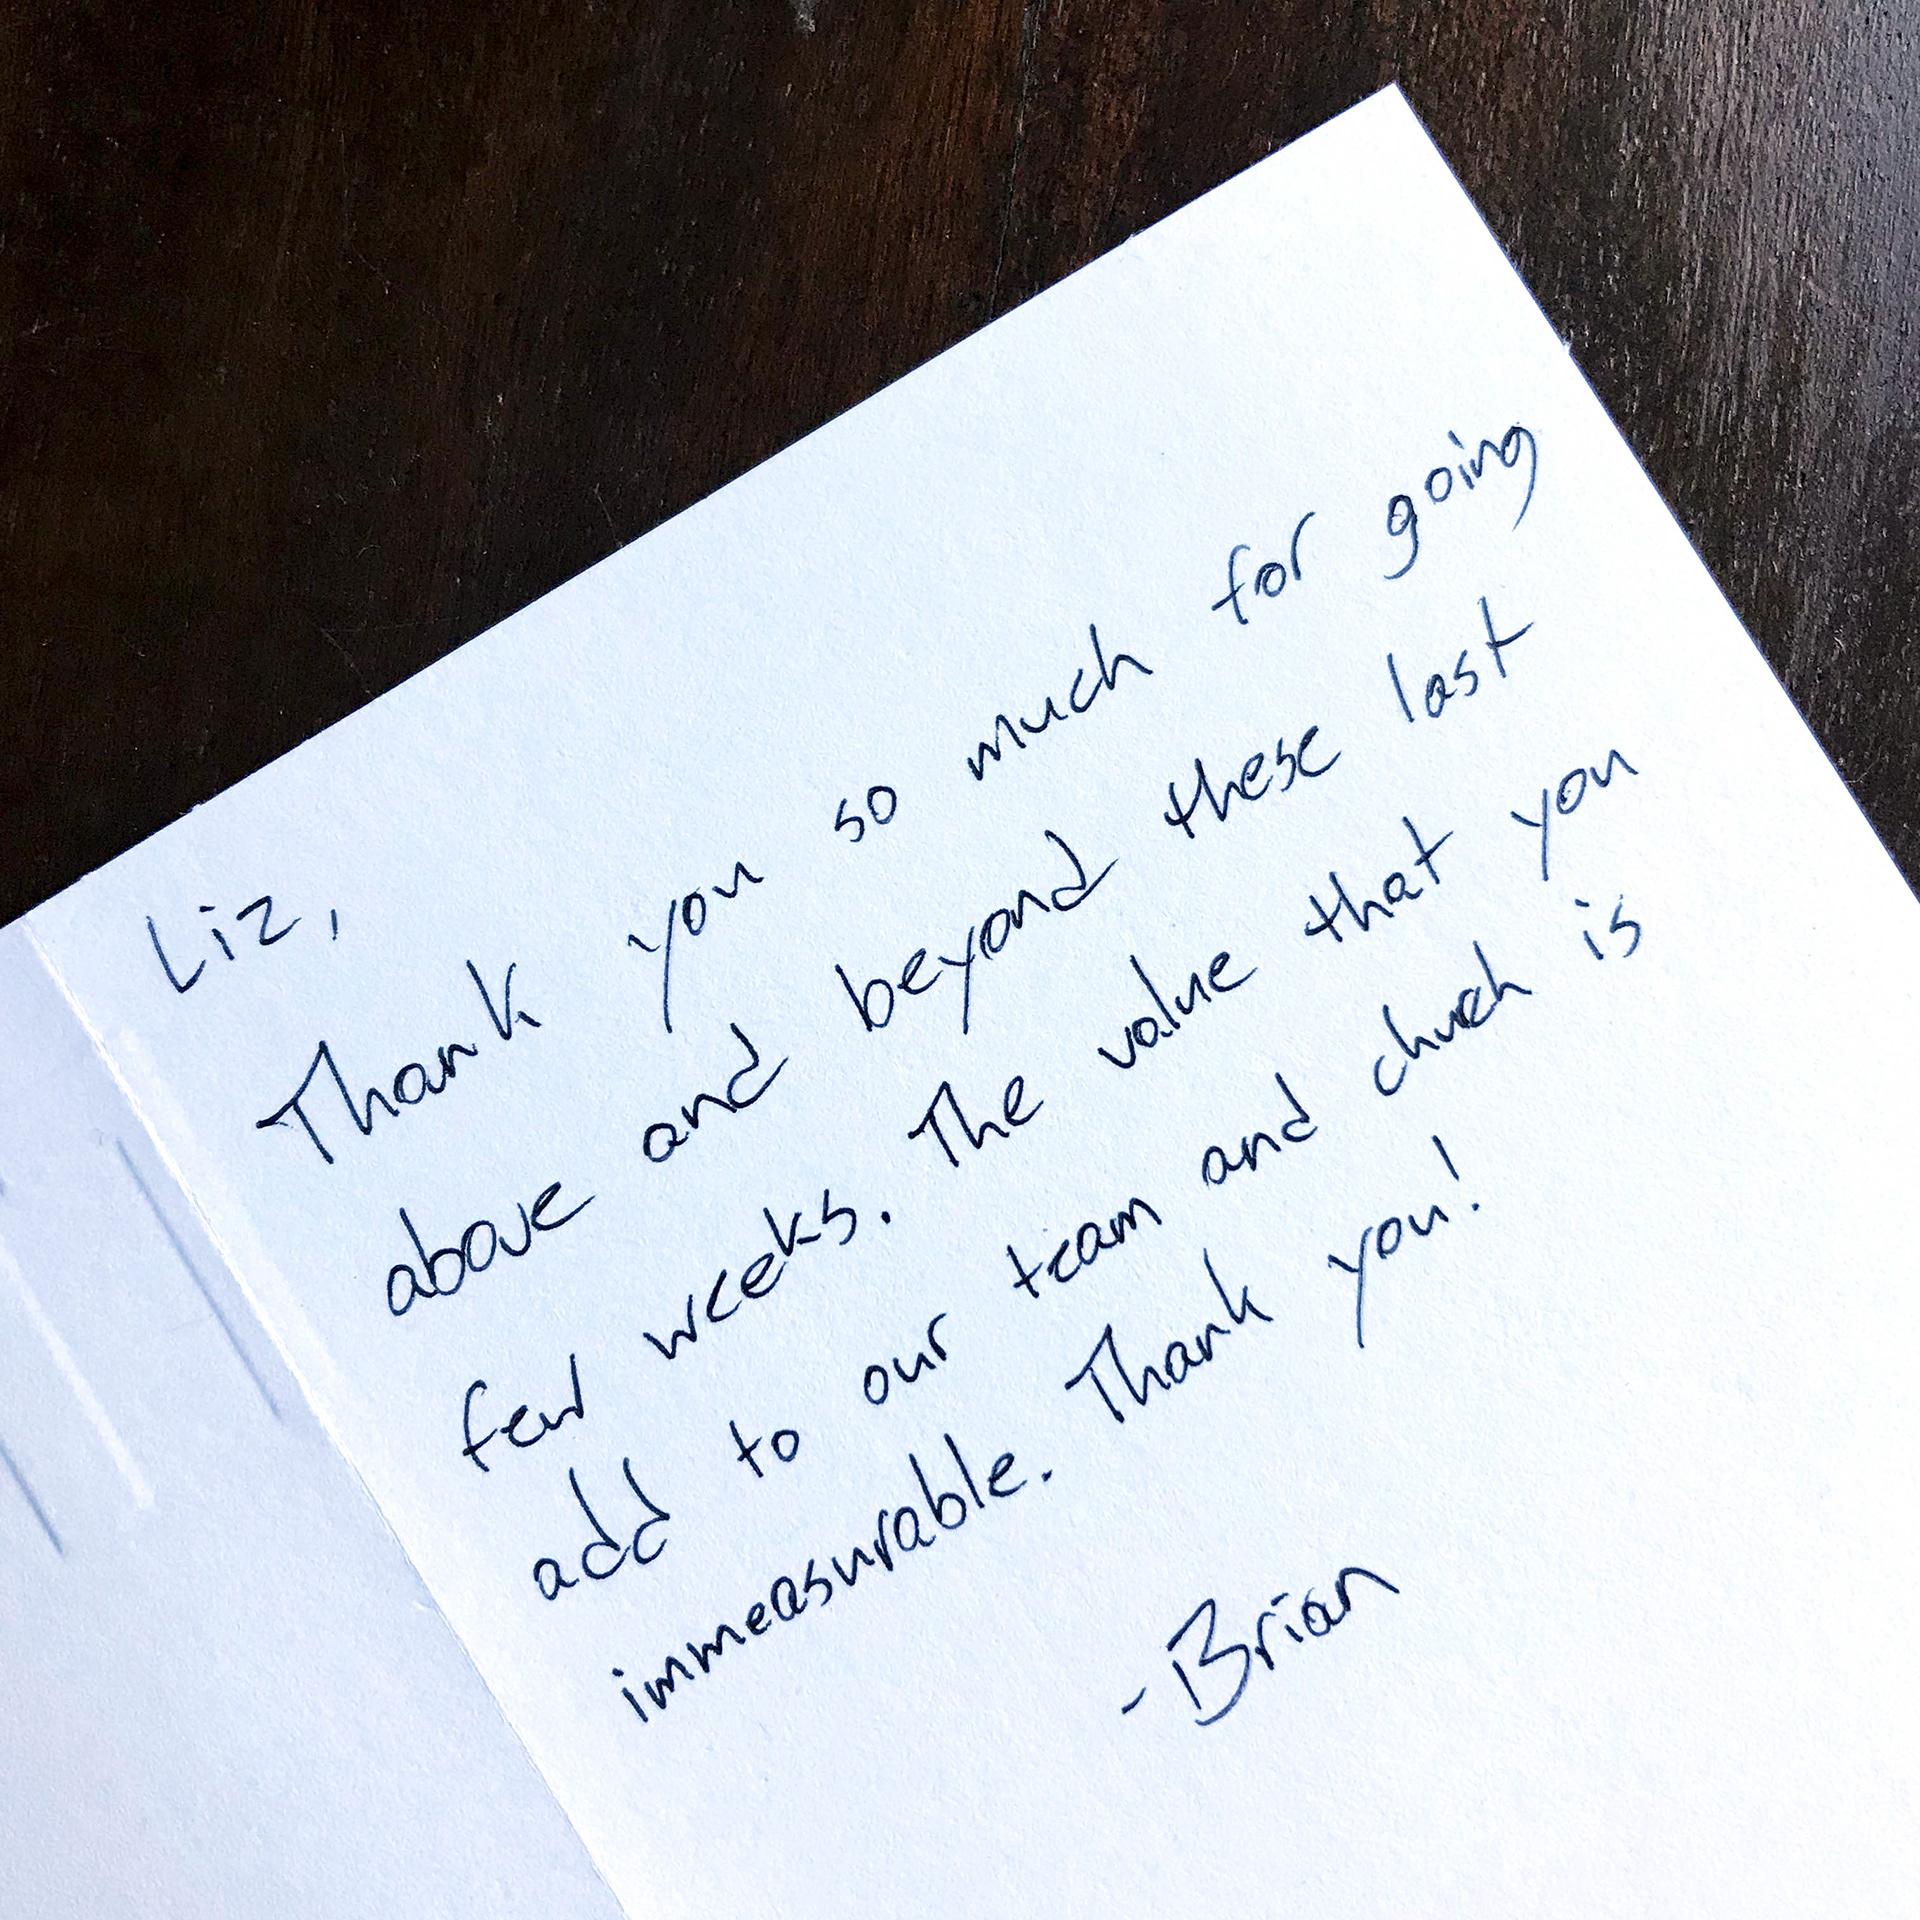 Liz,
Thank you so much for going
above and beyond these last
few weeks. The value that you
add to our team and church is
immeasurable. Thank you!
-Brian